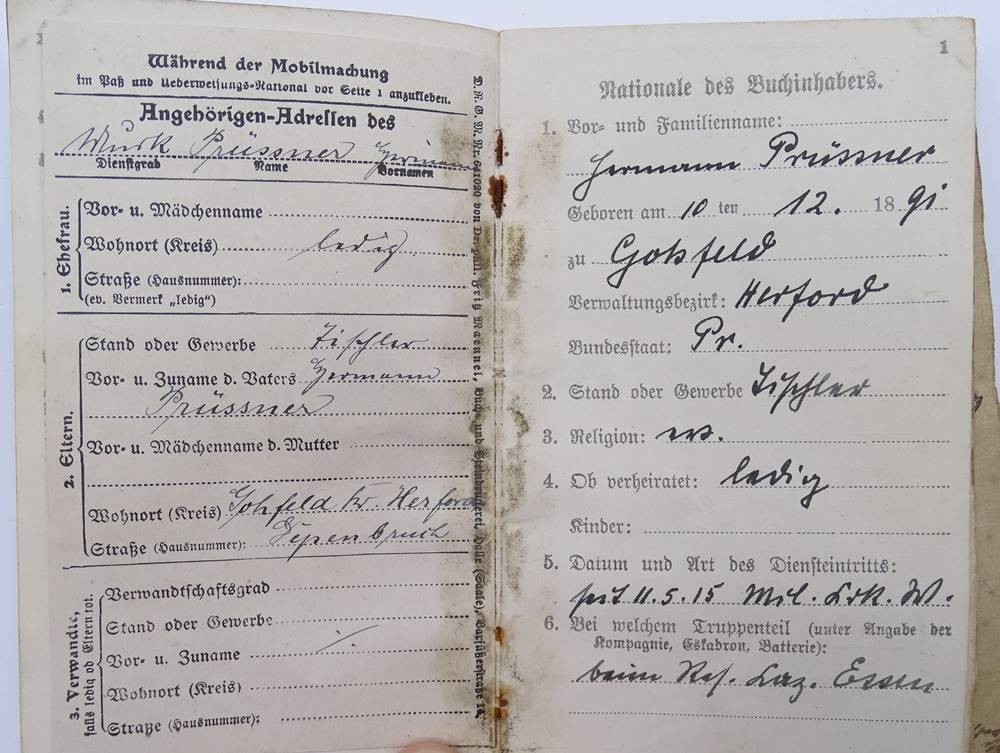 Während der Mobilmachung
im Paß und Ueberweisungs-National vor Seite 1 anzukleben.
Angehörigen-Adressen des
Prüssner Hermann
Dienstgrad Name Vornamen
1. Ehefrau.
Vor- u. Mädchenname
Wohnort (Kreis) ledig
Straße (Hausnummer):
(ev. Vermerk „ledig“)
2. Eltern.
Stand oder Gewerbe Tischler
Vor- u. Zuname d. Vaters Hermann
Prüssner
Vor- u. Mädchenname d. Mutter
Wohnort (Kreis) Gohfeld Kr. Herford
Straße (Hausnummer): Depenbruch
3. Verwandte,
falls ledig od Eltern tot.
Verwandtschaftsgrad
Stand oder Gewerbe
Vor- u. Zuname
Wohnort (Kreis)
Straße (Hausnummer):
D. R. G. M. Nr. 641020 von Fritz Maennel, Buch- und Steindruckerei, Halle (Saale), Barfüßerstraße
1
Nationale des Buchinhabers.
1. Vor- und Familienname:
Hermann Prüssner
Geboren am 10 ten 12. 1891
zu Gohfeld
Verwaltungsbezirk: Herford
Bundesstaat: Pr.
2. Stand oder Gewerbe Tischler
3. Religion: ev.
4. Ob verheiratet: ledig
Kinder:
5. Datum und Art des Diensteintritts:
seit 11.5.15 Mil. Krk. W.
6. Bei welchem Truppenteil (unter Angabe der
Kompagnie, Eskadron, Batterie):
beim Res. Laz. Essen